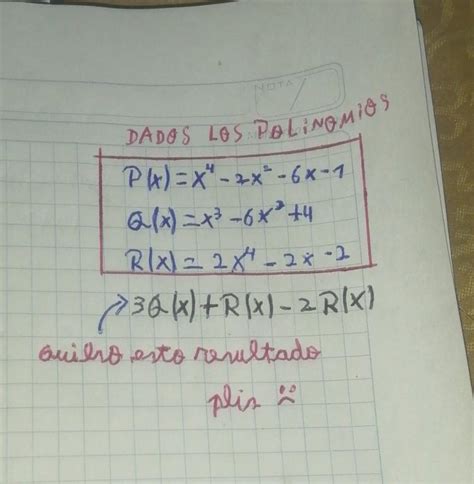 NOTA
DADOS LOS POLINOMIOS
P(x) = x⁴ - 2x² - 6x - 1
Q(x) = x³ - 6x² + 4
R(x) = 2x⁴ - 2x - 2
3Q(x) + R(x) - 2R(x)
quiero esto resultado
plis